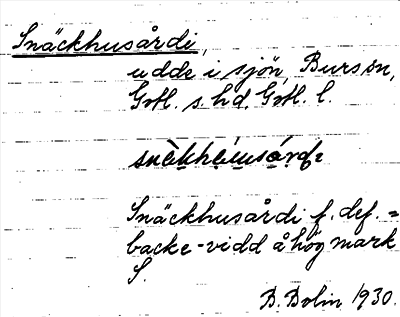 Snäckhusårdi,
udde i sjön, Bursön,
Gotl. s. hd, Gotl. l.
Snäckhusårdi f. def. =
backe-vidd å hög mark
S.
B. Bolin 1930.